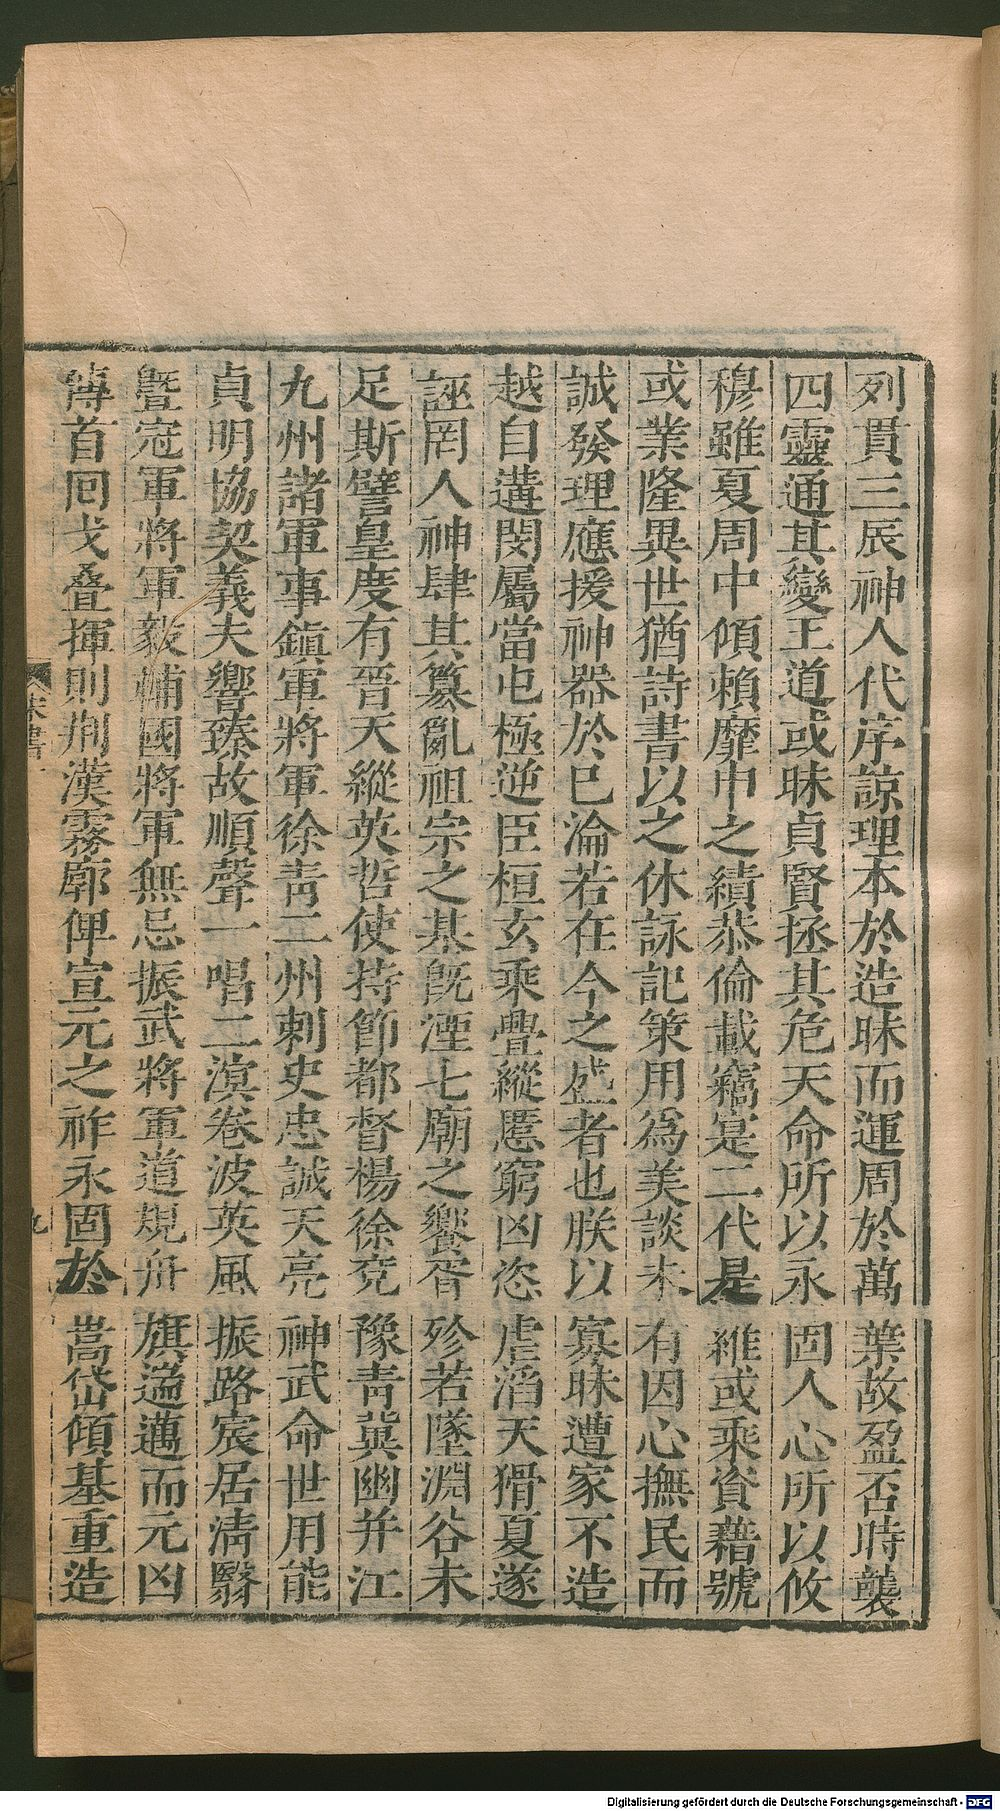 列貫三辰神人代序諒理本於造昧而運周於萬葉故盈否時襲
四靈通其變王道或昧貞賢拯其危天命所以永固人心所以攸
穆雖夏周中傾賴靡申之績恭倫載竊寔二代是維或乘資藉號
或業隆異世猶詩書以之休詠記策用為美談未有因心撫民而
誠發理應援神器於已淪若在今之盛者也朕以寡昧遭家不造
越自遘閔屬當屯極逆臣桓玄乘舋縱慝窮凶恣虐滔天猾夏遂
誣罔人神肆其篡亂祖宗之基旣湮七廟之饗胥殄若墜淵谷未
足斯譬皇度有晉天縱英哲使持節都督楊徐兗豫青冀幽并江
九州諸軍事鎮軍將軍徐青二州刺史忠誠天亮神武命世用能
貞明協契義夫響臻故順聲一唱二溟卷波英風振路宸居清翳
曁冠軍將軍毅輔國將軍無忌振武將軍道規舟旗遄邁而元凶
傳首回戈疊揮則荆漢霧廓俾宣元之祚永固於嵩岱傾基重造
宋書
九
Digitalisierung gefördert durch die Deutsche Forschungsgemeinschaft - DFG